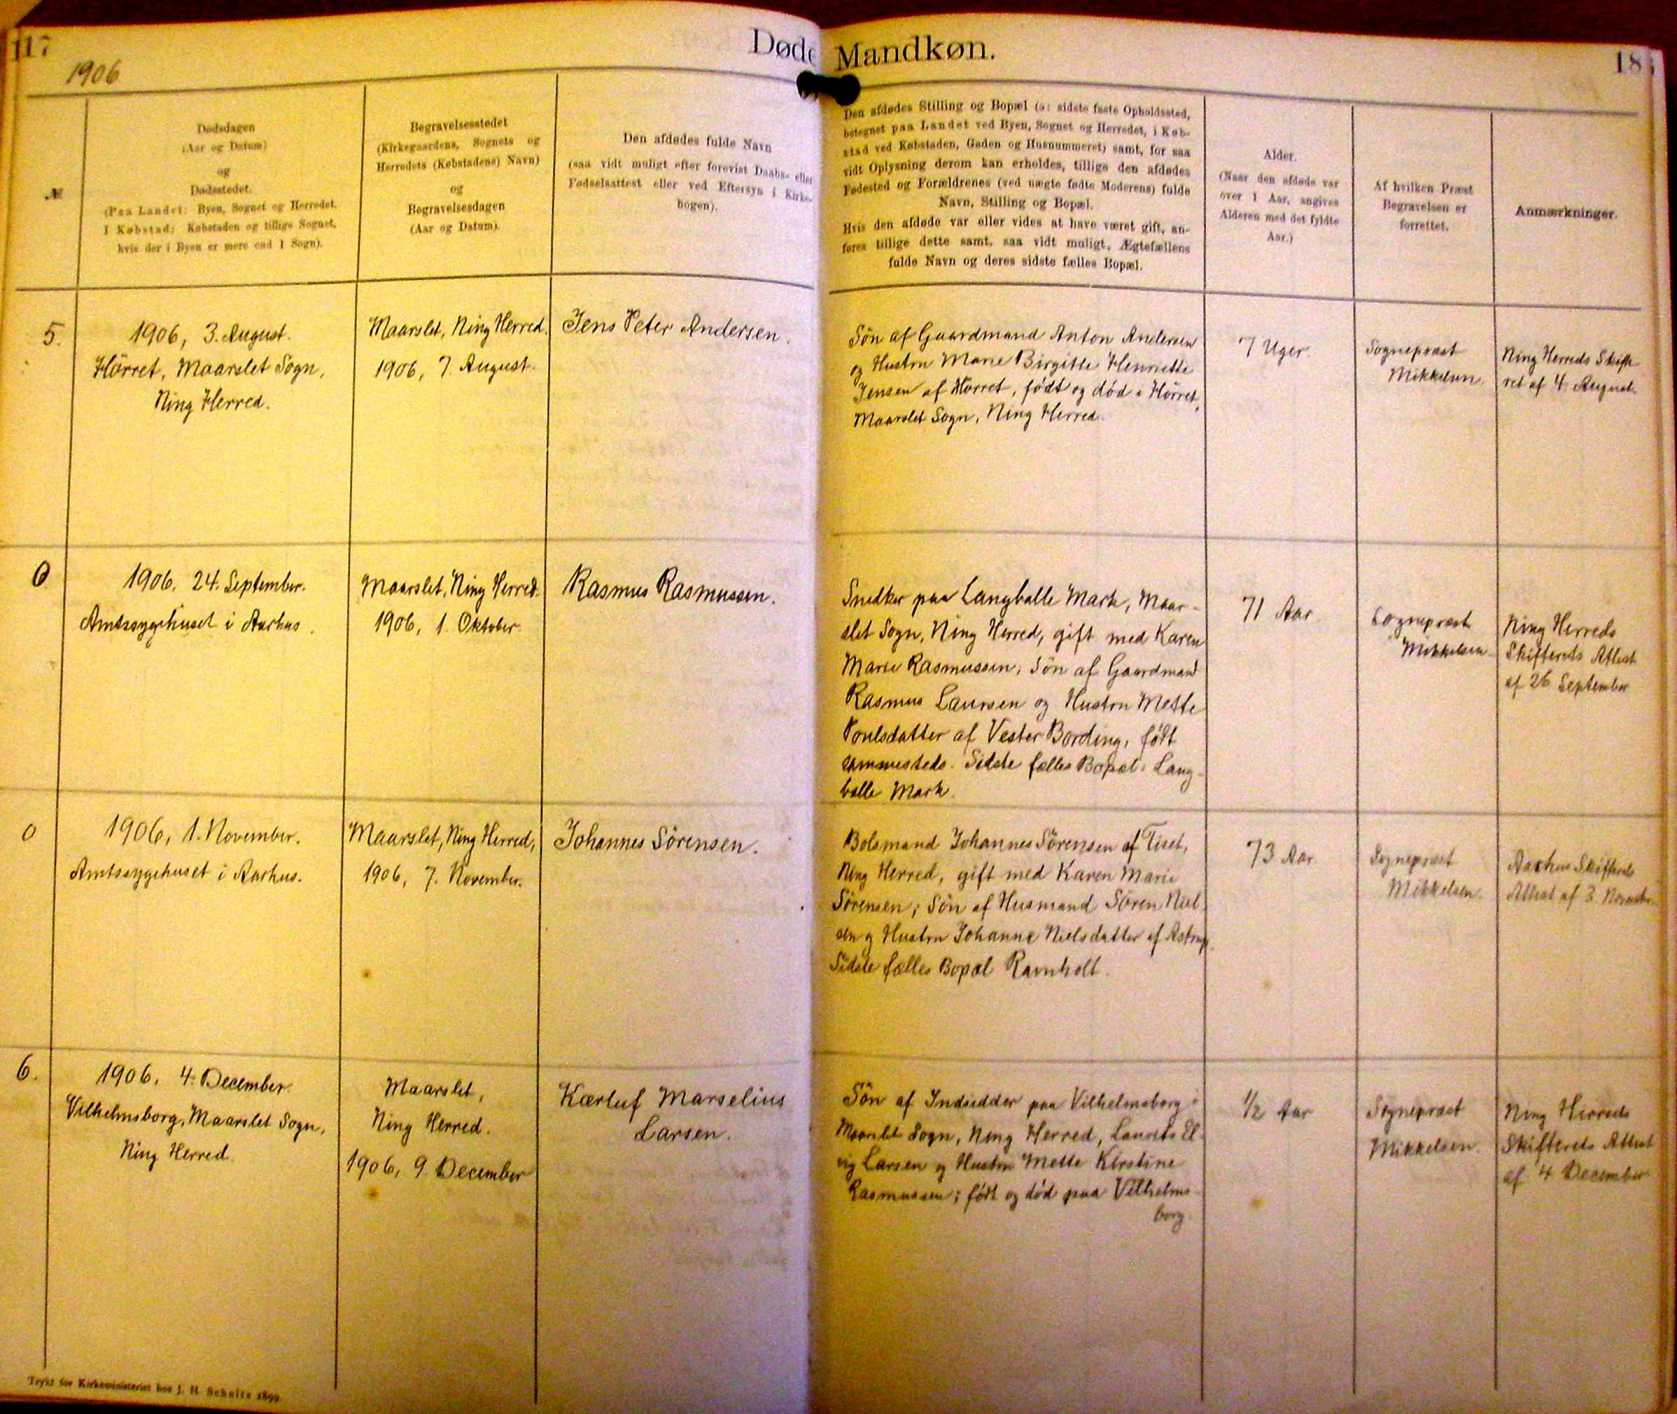 117
1906
Døde
Mandkøn.
№
Dødsdagen
(Aar og Datum)
og
Dødsstedet.
(Paa Landet: Byen, Sognet og Herredet.
I Købstad: Købstaden og tillige Sognet,
hvis der i Byen er mere end 1 Sogn).
Begravelsesstedet
(Kirkegaardens, Sognets og
Herredets (Købstadens) Navn)
og
Begravelsesdagen
(Aar og Datum).
Den afdødes fulde Navn
(saa vidt muligt efter forevist Daabs- eller
Fødselsattest eller ved Eftersyn i Kirke-
bogen).
Den afdødes Stilling og Bopæl (ɔ: sidste faste Opholdssted,
betegnet paa Landet ved Byen, Sognet og Herredet, i Køb-
stad ved Købstaden, Gaden og Husnummeret) samt, for saa
vidt Oplysning derom kan erholdes, tillige den afdødes
Fødested og Forældrenes (ved uægte fødte Moderens) fulde
Navn, Stilling og Bopæl.
Hvis den afdøde var eller vides at have været gift, an-
føres tillige dette samt, saa vidt muligt, Ægtefællens
fulde Navn og deres sidste fælles Bopæl.
Alder.
(Naar den afdøde var
over 1 Aar, angives
Alderen med det fyldte
Aar.)
Af hvilken Præst
Begravelsen er
forrettet.
Anmærkninger.
5.
1906, 3. August.
Hörret, Maarslet Sogn,
Ning Herred.
Maarslet, Ning Herred.
1906, 7. August.
Jens Peter Andersen.
Sön af Gaardmand Anton Andersen
og Hustru Marie Birgitte Henriette
Jensen af Hörret, født og död i Hörret,
Maarslet Sogn, Ning Herred.
7 Uger.
Sognepræst
Mikkelsen
Ning Herreds Skifte
ret af 4. August.
0
1906. 24. September.
Amtssygehuset i Aarhus.
Maarslet, Ning Herred.
1906, 1. Oktober.
Rasmus Rasmussen.
Snedker paa Langballe Mark, Maar-
slet Sogn, Ning Herred, gift med Karen
Marie Rasmussen, Sön af Gaardmand
Rasmus Laursen og Hustru Mette
Poulsdatter af Vester Bording, født
sammesteds. Sidste fælles Bopæl: Lang-
balle Mark.
71 Aar
Sognepræst
Mikkelsen
Ning Herreds
Skifterets Attest
af 26 September
0
1906, 1. November.
Amtssygehuset i Aarhus.
Maarslet, Ning Herred,
1906, 7. November.
Johannes Sörensen.
Bolsmand Johannes Sörensen af Tiset,
Ning Herred, gift med Karen Marie
Sörensen; Sön af Husmand Sören Niel-
sen og Hustru Johanne Nielsdatter af Astrup.
Sidste fælles Bopæl Ravnholt.
73 Aar
Sognepræst
Mikkelsen.
Aarhus Skifterets
Attest af 3. November.
6.
1906. 4. December.
Vilhelmsborg, Maarslet Sogn,
Ning Herred.
Maarslet,
Ning Herred.
1906, 9. December
Kærluf Marselius
Larsen.
Sön af Indsidder paa Vilhelmsborg i
Maarslet Sogn, Ning Herred, Laurits El-
vig Larsen og Hustru Mette Kirstine
Rasmussen; født og död paa Vilhelms-
borg.
1/2 Aar
Sognepræst
Mikkelsen.
Ning Herreds
Skifterets Attest
af 4 December
Trykt for Kirkeministeriet hos J. H. Schultz 1899.